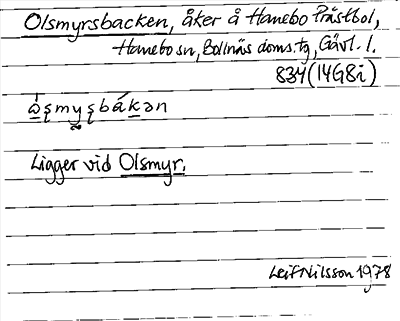 Olsmyrsbacken, åker å Hanebo Prästbol,
Hanebo sn, Bollnäs doms. tg, Gävl. l.
834 (14G8i)
Ligger vid Olsmyr.
Leif Nilsson 1978